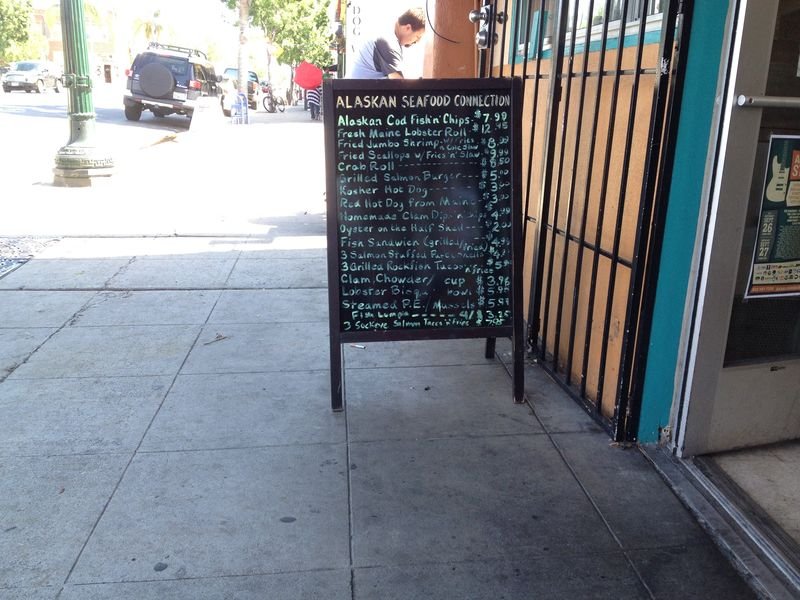 DOG
ALASKAN SEAFOOD CONNECTION
Alaskan Cod Fish'n'Chips $7.99
Fresh Maine Lobster Roll $12.95
Fried Jumbo Shrimp w/fries n Cole Slaw $8.99
Fried Scallops w/ Fries'n'Slaw $9.99
Crab Roll $6.50
Grilled Salmon Burger $5.00
Kosher Hot Dog $3.00
Red Hot Dog from Maine $3.00
Homemade Clam Dip'n'Chips $4.99
Oyster on the Half Shell $2.00
Fish Sandwich (grilled/fried) $4.95
3 Salmon Stuffed Pasta Shells
3 Grilled Rockfish Tacos n fries $5.95
Clam Chowder/ cup $3.96
Lobster Bisque bowl $5.95
Steamed P.E. Mussels $5.99
Fish Lumpia 4/$3.25
3 Sockeye Salmon Tacos n' Fries $7.95
26
SEPT
27